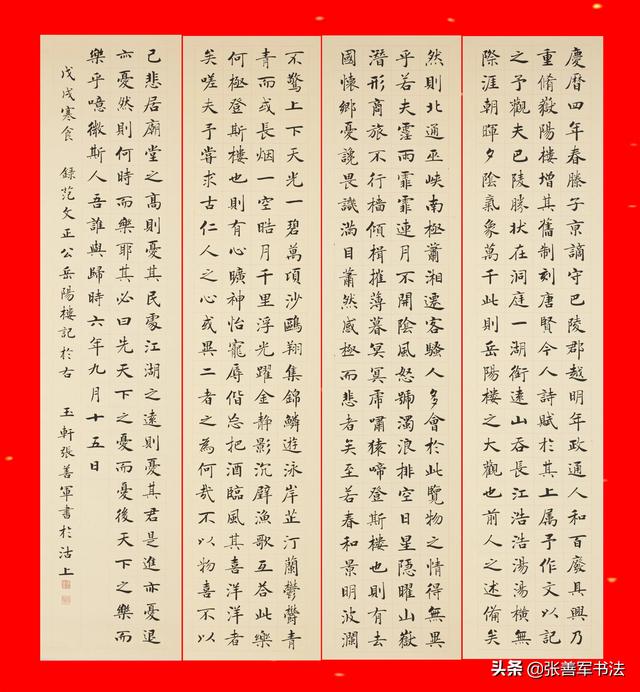 慶曆四年春滕子京謫守巴陵郡越明年政通人和百廢具興乃
重脩嶽陽樓增其舊制刻唐賢今人詩賦於其上属予作文以記
之予觀夫巴陵勝狀在洞庭一湖銜遠山吞長江浩浩湯湯橫無
際涯朝暉夕陰氣象萬千此則岳陽樓之大觀也前人之述備矣
然則北通巫峽南極瀟湘遷客騷人多會於此覽物之情得無異
乎若夫霪雨霏霏連月不開陰風怒號濁浪排空日星隱曜山嶽
潛形商旅不行檣傾楫摧薄暮冥冥虎嘯猿啼登斯樓也則有去
國懷鄉憂讒畏譏滿目蕭然感極而悲者矣至若春和景明波瀾
不驚上下天光一碧萬頃沙鷗翔集錦鱗遊泳岸芷汀蘭鬱鬱青
青而或長烟一空皓月千里浮光躍金静影沉璧漁歌互荅此樂
何極登斯樓也則有心曠神怡寵辱偕忘把酒臨風其喜洋洋者
矣嗟夫予嘗求古仁人之心或異二者之為何哉不以物喜不以
己悲居廟堂之髙則憂其民處江湖之遠則憂其君是進亦憂退
亦憂然則何時而樂耶其必曰先天下之憂而憂後天下之樂而
樂乎噫微斯人吾誰與歸時六年九月十五日
戊戌寒食 錄范文正公岳陽樓記於右 玉軒張善軍書於沽上
头条 @张善军书法